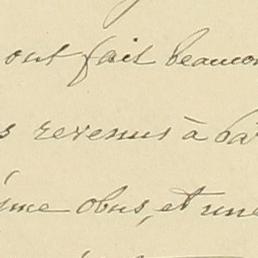 ont fait beaucou
s revenus à bâ
ime obus, et une